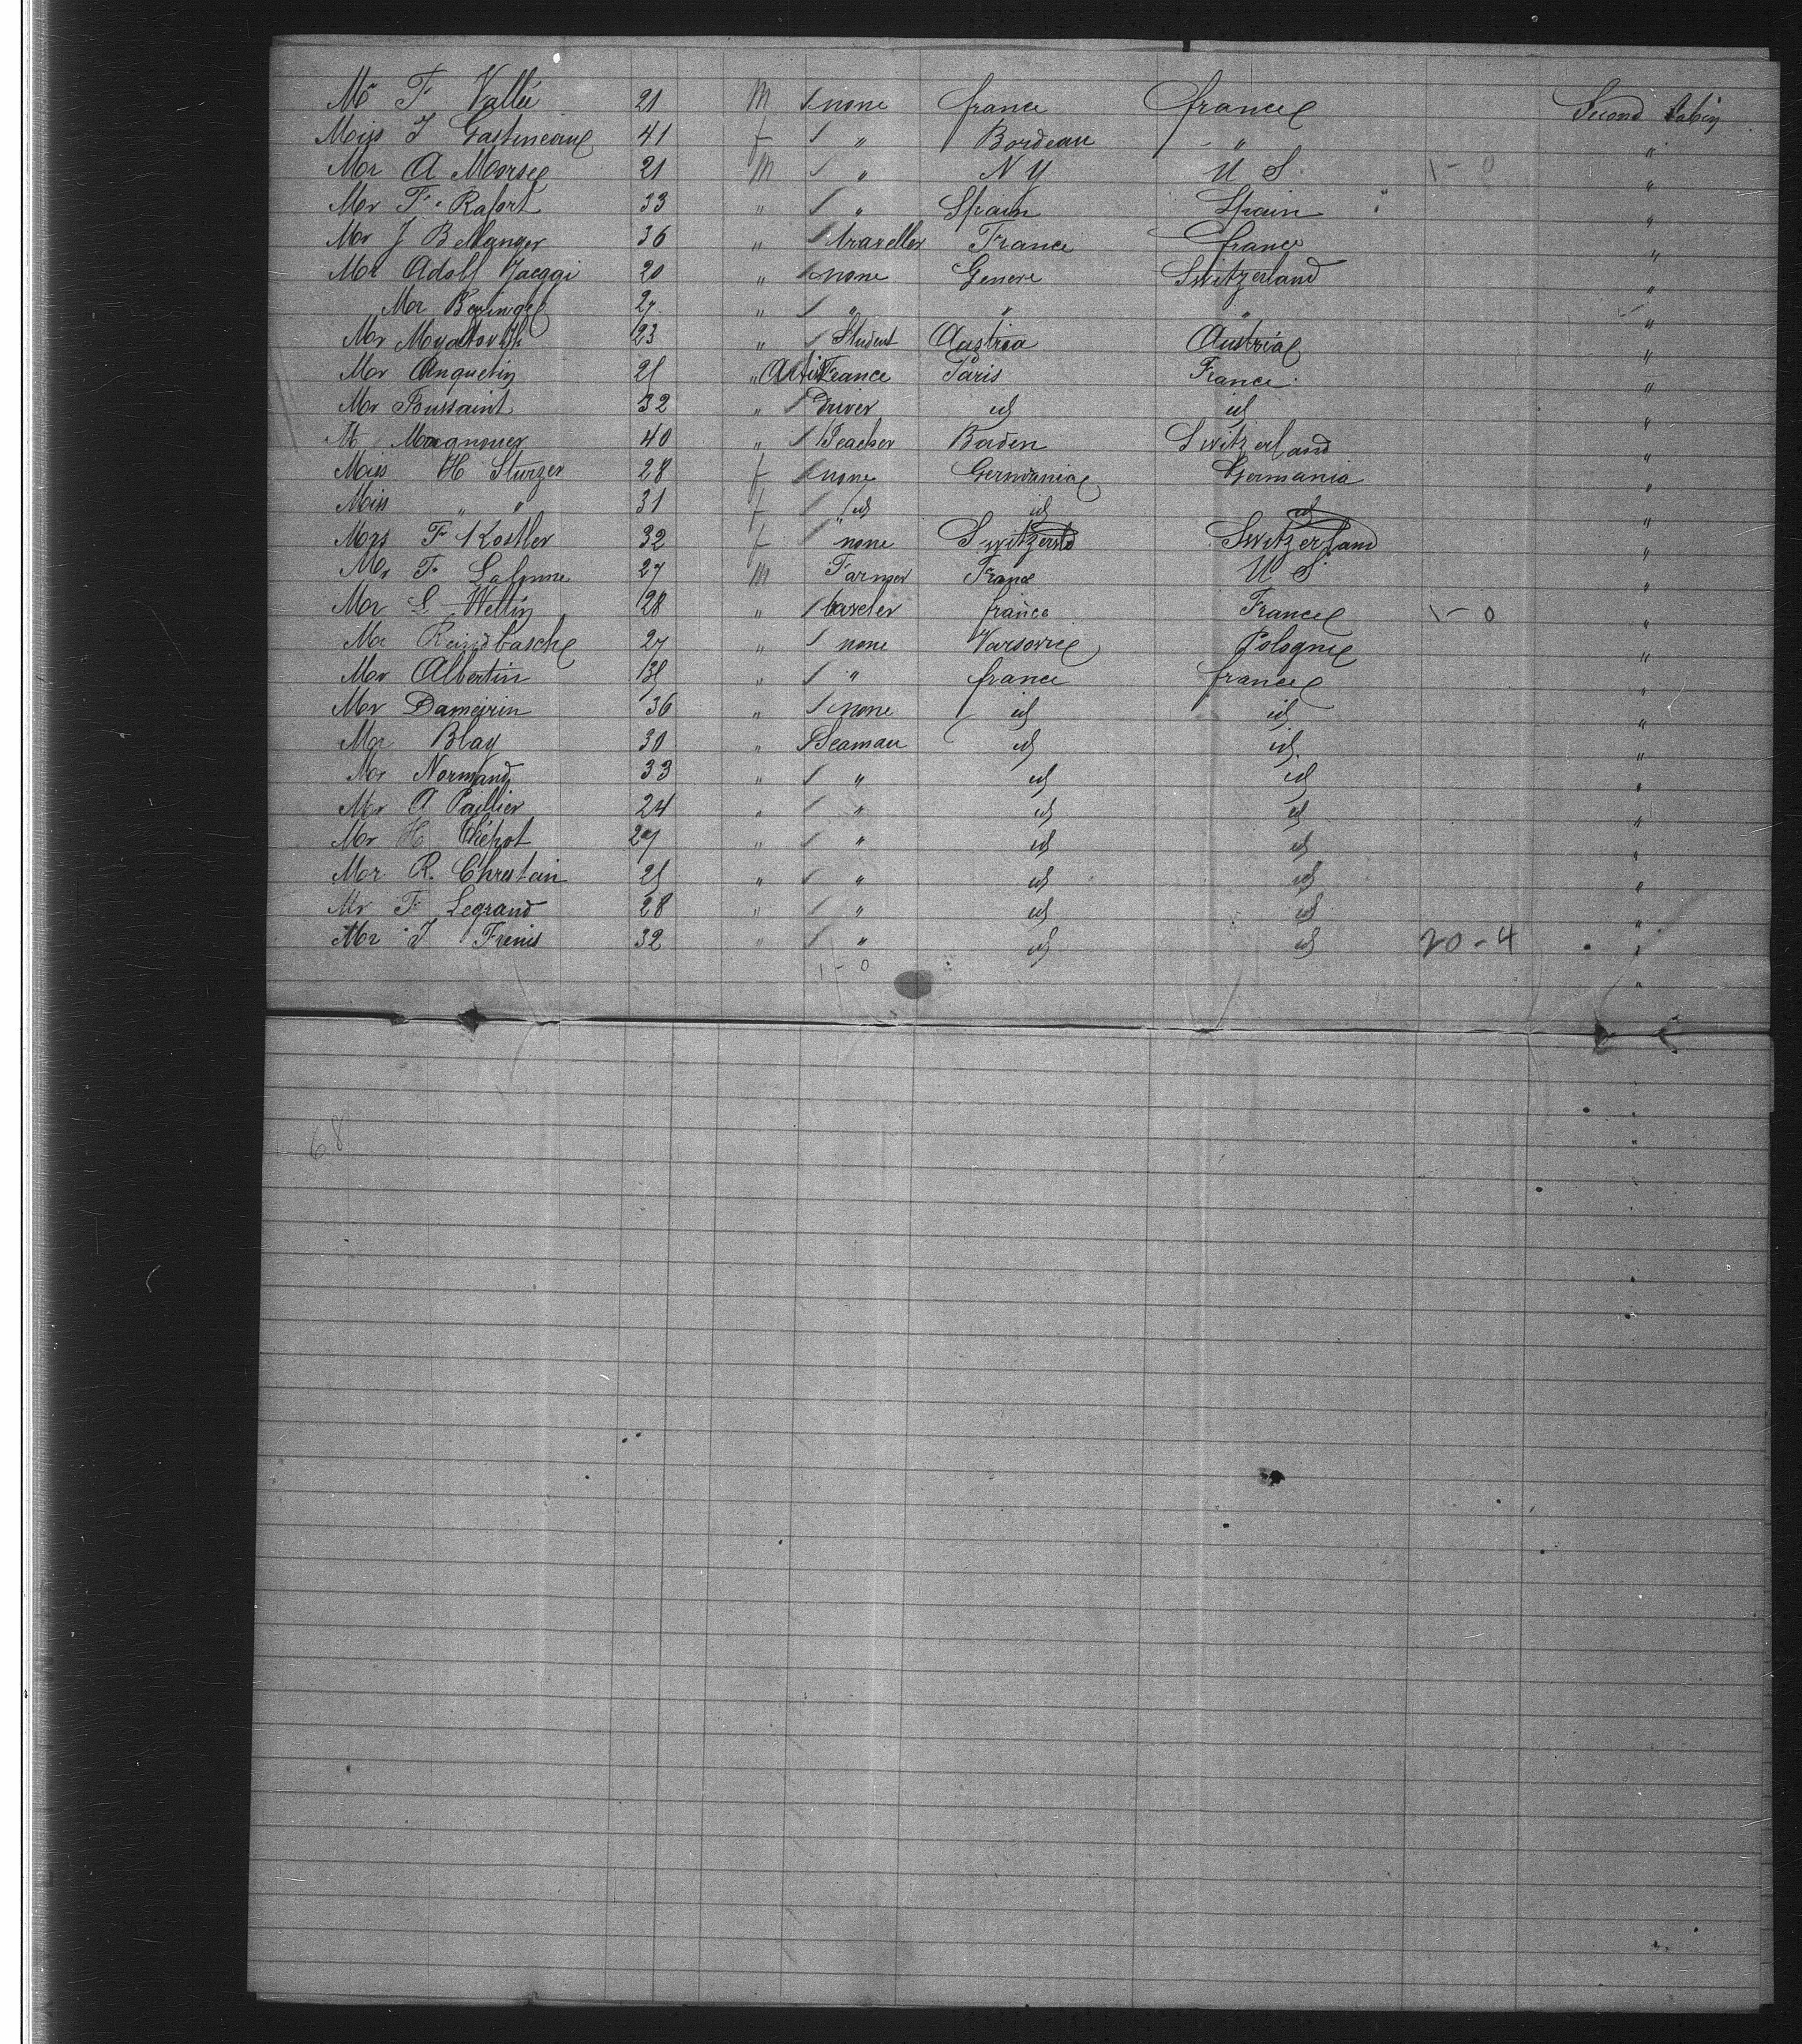 Mr F Vallée 21 M none france france Second Cabin
Miss J Gastineaux 41 f " Bordeau " "
Mr A Morse 21 M " N Y U S. 1 - 0 "
Mr F. Rafort 33 " " Spain Spain "
Mr J Bellanger 36 " traveller France france "
Mr Adolf Jaeggi 20 " none Geneve Switzerland "
Mr 27 " " " " "
Mr 23 " Student Austria Austria "
Mr Anquetin " Paris France "
Mr Toussaint 32 " Driver id id "
M 40 " Teacher Baden Switzerland "
Miss H Sturzer 28 f none Germania Germania "
Miss " " 31 f id id id "
Mrs F Kostler 32 f " none Switzerld Switzerland "
Mr F. 27 M Farmer France U S. "
Mr L Wettin 28 " france France 1 - 0 "
Mr 27 " none Varsovie Pologne "
Mr Albertin " " france france "
Mr 36 " none id id "
Mr Blay 30 " Seaman id id. "
Mr Normand 33 " " id id "
Mr A Paillier 24 " " id id "
Mr H 27 " " id id "
Mr R. " " id id "
Mr F Legrand 28 " " id id "
Mr J Frenis 32 " " id id 20 - 4 "
1 - 0 "
68